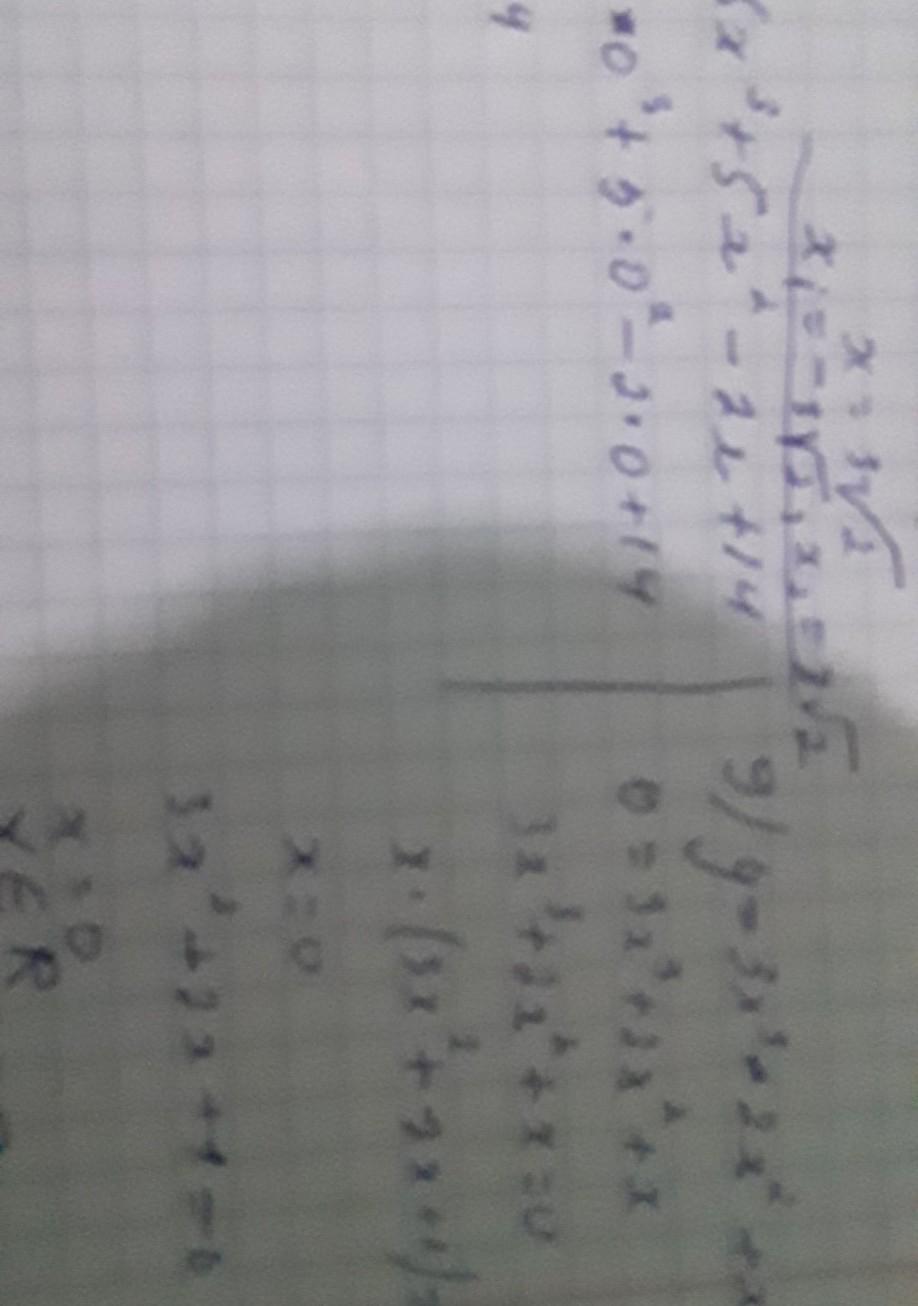 x = ³√2
x₁ = -³√2, x₂ = ³√2
x³ + 5x² - 2x + 14
0³ + 5·0² - 2·0 + 14
4
g) y = 3x³ + 2x² + x
0 = 3x³ + 2x² + x
3x³ + 2x² + x = 0
x·(3x² + 2x + 1) =
x = 0
3x² + 2x + 1 = 0
x = 0
x ∈ R